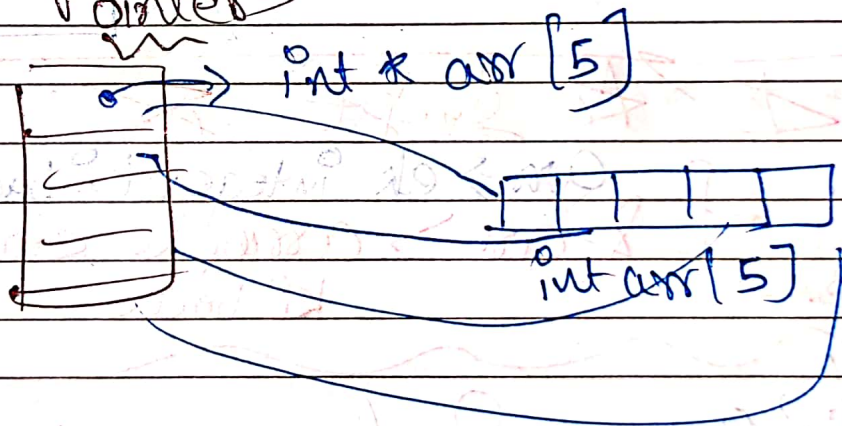 Pointer
int * arr [5]
int arr [5]